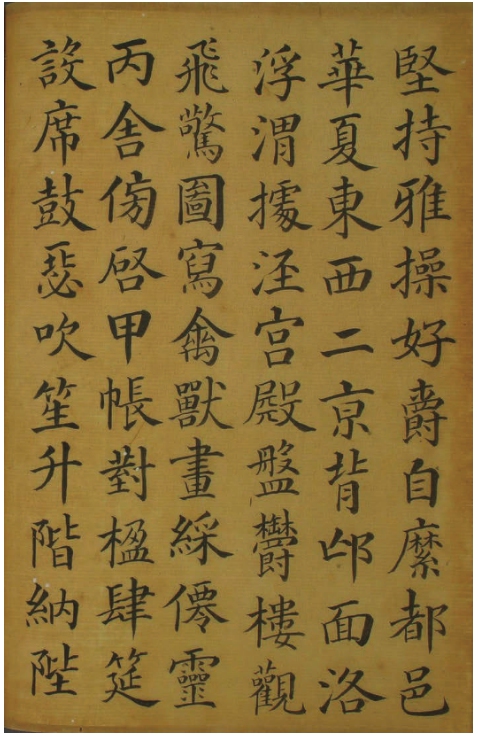 堅持雅操好爵自縻都邑
華夏東西二亰背邙面洛
浮渭據涇宮殿盤鬱樓觀
飛驚圖寫禽獸畫綵僊靈
丙舍傍啓甲帳對楹肆筵
設席鼓瑟吹笙升階納陛